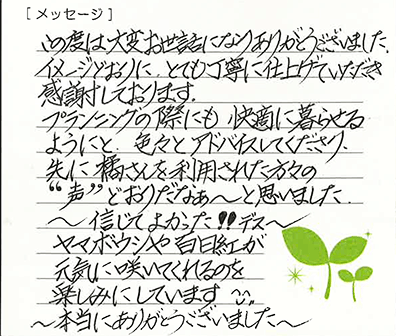 [メッセージ]
この度は大変お世話になりありがとうございました。
イメージどおりに、とても丁寧に仕上げていただき
感謝しております。
プランニングの際にも 快適に暮らせる
ようにと、色々とアドバイスしてくださり、
先に 橘さんを利用された方々の
“声”どおりだなぁ〜と思いました。
〜信じてよかった!!デス〜
ヤマボウシや百日紅が
元気に咲いてくれるのを
楽しみにしています
〜本当にありがとうございました〜